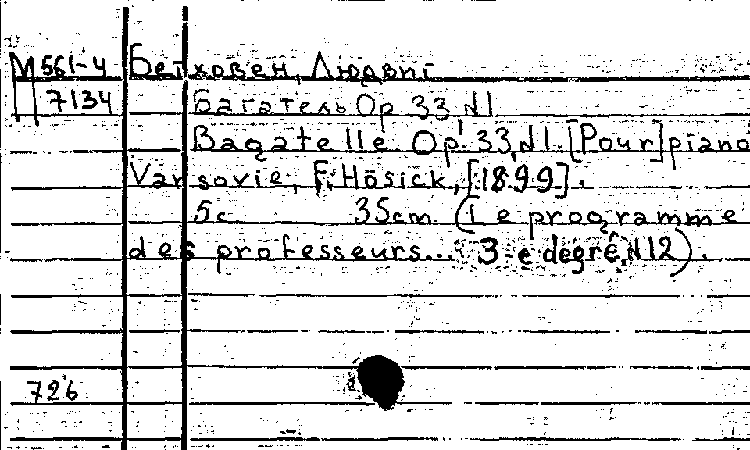 М 561-4 Бетховен, Людвиг
7134 Багатель Ор 33, №1
Bagatelle. Op. 33, №1. [Pour] piano
Varsovie, F. Hösick, [1899].
5с. 35cm. (Le programme
des professeurs... 3-e degré, №12).
726